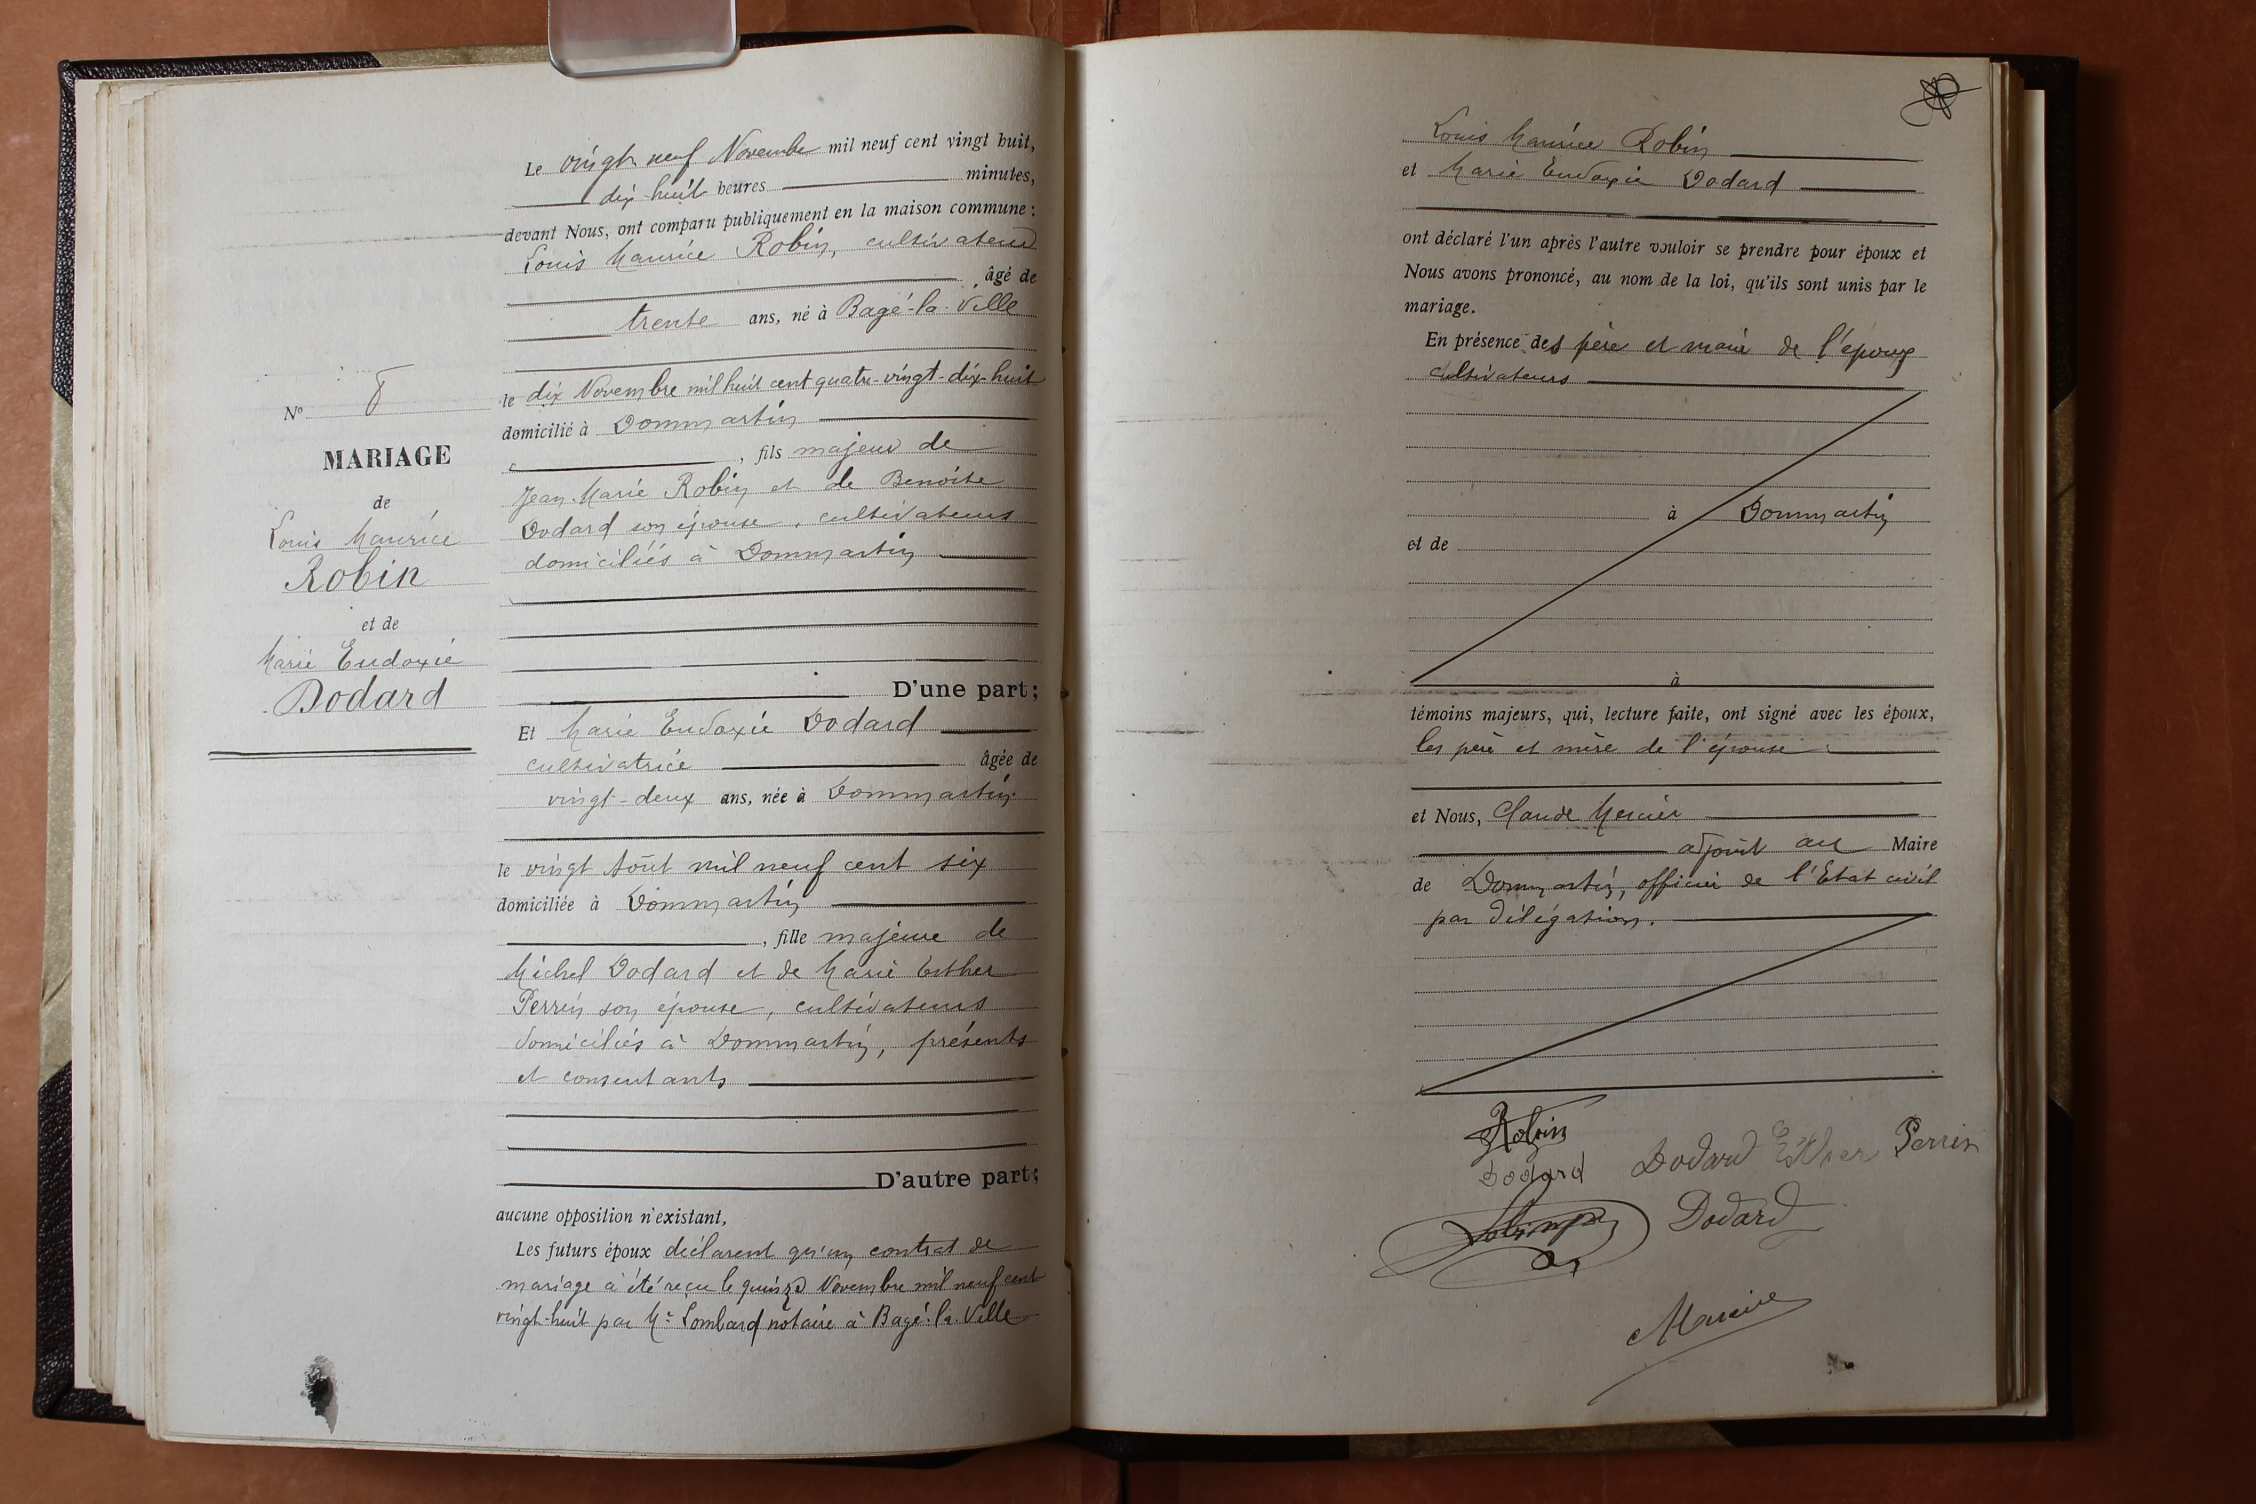 N° 8
MARIAGE
de
Louis Maurice
Robin
et de
Marie Eudoxie
Dodard
Le vingt neuf Novembre mil neuf cent vingt huit,
dix-huit heures minutes,
devant Nous, ont comparu publiquement en la maison commune :
Louis Maurice Robin, cultivateur
âgé de
trente ans, né à Bagé-la-Ville
le dix Novembre mil huit cent quatre-vingt-dix-huit
domicilié à Dommartin
, fils majeur de
Jean-Marie Robin et de Benoite
Dodard son épouse, cultivateurs
domiciliés à Dommartin
D'une part ;
Et Marie Eudoxie Dodard
cultivatrice âgée de
vingt-deux ans, née à Dommartin
le vingt Août mil neuf cent six
domiciliée à Dommartin
, fille majeure de
Michel Dodard et de Marie Esther
Perrin son épouse, cultivateurs
domiciliés à Dommartin, présents
et consentants
D'autre part ;
aucune opposition n'existant,
Les futurs époux déclarent qu'un contrat de
mariage a été reçu le quinze Novembre mil neuf cent
vingt-huit par Me Lombard notaire à Bagé-la-Ville
Louis Maurice Robin
et Marie Eudoxie Dodard
ont déclaré l'un après l'autre vouloir se prendre pour époux et
Nous avons prononcé, au nom de la loi, qu'ils sont unis par le
mariage.
En présence des père et mère de l'époux
cultivateurs
à Dommartin
et de
à
témoins majeurs, qui, lecture faite, ont signé avec les époux,
les père et mère de l'épouse
et Nous, Claude Mercier
adjoint au Maire
de Dommartin, officier de l'Etat civil
par délégation.
Robin
Dodard Esther Perrin
Dodard
Dodard